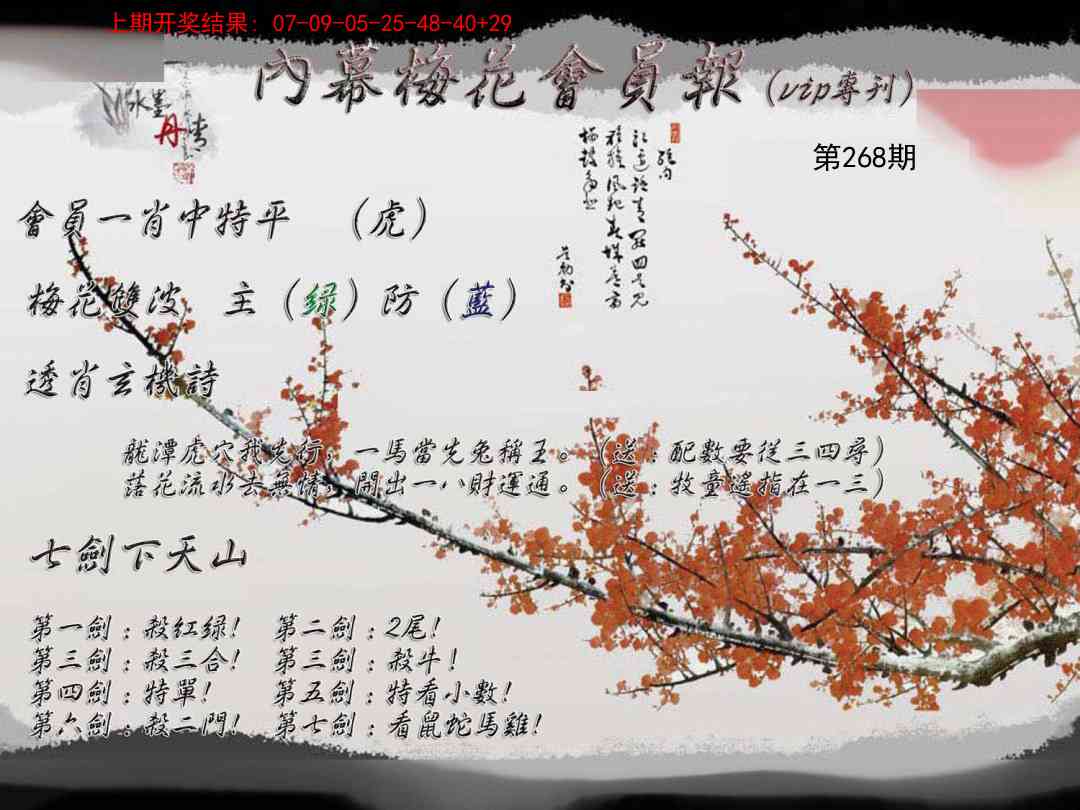 上期开奖结果：07-09-05-25-48-40+29
內幕梅花會員報（vip專刊）
水墨
丹青
第268期
會員一肖中特平　（虎）
梅花雙波　主（绿）防（藍）
透肖玄機詩
龍潭虎穴我先行，一馬當先兔稱王。（送：配數要從三四尋）
落花流水去無情，開出一八財運通。（送：牧童遙指在一三）
七劍下天山
第一劍：殺紅绿！　第二劍：2尾！
第三劍：殺三合！　第三劍：殺牛！
第四劍：特單！　第五劍：特看小數！
第六劍：殺二門！　第七劍：看鼠蛇馬雞！